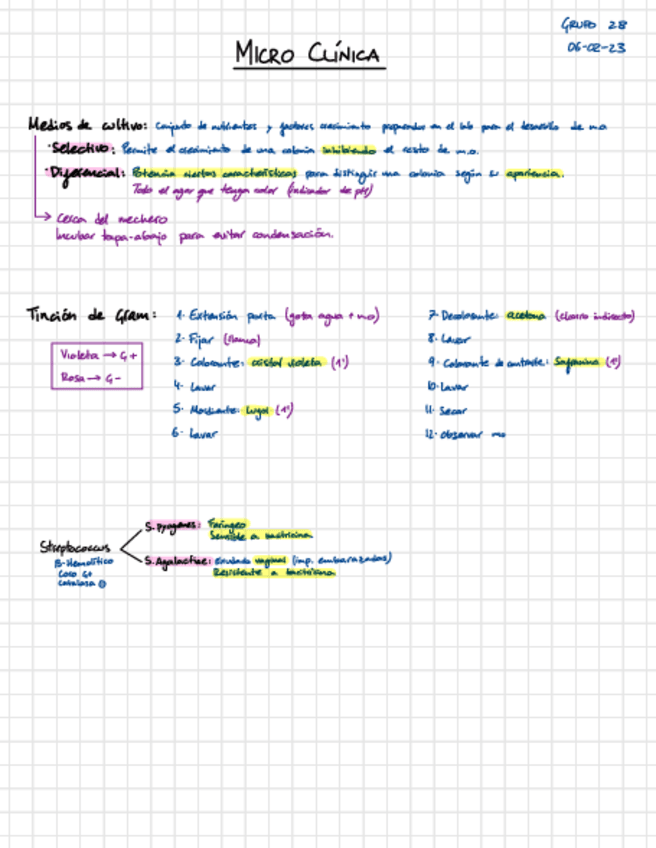 GRUPO 28
06-02-23
MICRO CLÍNICA
Medios de cultivo: Conjunto de nutrientes y factores crecimiento preparados en el lab para el desarrollo de m.o
· Selectivo: Permite el crecimiento de una colonia inhibiendo el resto de m.o.
· Diferencial: Potencia ciertas características para distinguir una colonia según su apariencia.
Todo el agar que tenga color (indicador de pH)
→ Cerca del mechero
Incubar tapa-abajo para evitar condensación.
Tinción de Gram:
Violeta → G+
Rosa → G-
1· Extensión porta (gota agua + mo)
2· Fijar (llama)
3· Colorante: cristal violeta (1')
4· Lavar
5· Mordiente: Lugol (1')
6· Lavar
7· Decolorante: acetona (chorro indirecto)
8· Lavar
9· Colorante de contraste: Safranina (1')
10· Lavar
11· Secar
12· Observar mo
Streptococcus
β-Hemolítico
Coco G+
Catalasa ⊖
S. pyogenes: Faríngeo
Sensible a bacitricina
S. Agalactiae: vaginal (imp. embarazadas)
Resistente a bacitricina